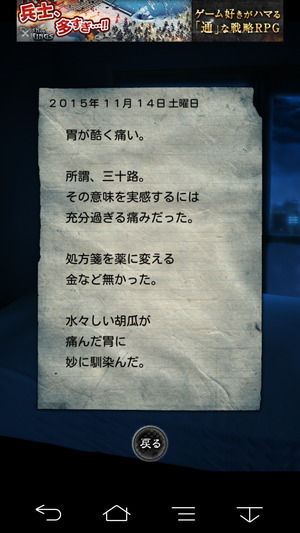 兵士、
多すぎ…!!
ゲーム好きがハマる
「通」な戦略RPG
2015年11月14日土曜日
胃が酷く痛い。
所謂、三十路。
その意味を実感するには
充分過ぎる痛みだった。
処方箋を薬に変える
金など無かった。
水々しい胡瓜が
痛んだ胃に
妙に馴染んだ。
戻る